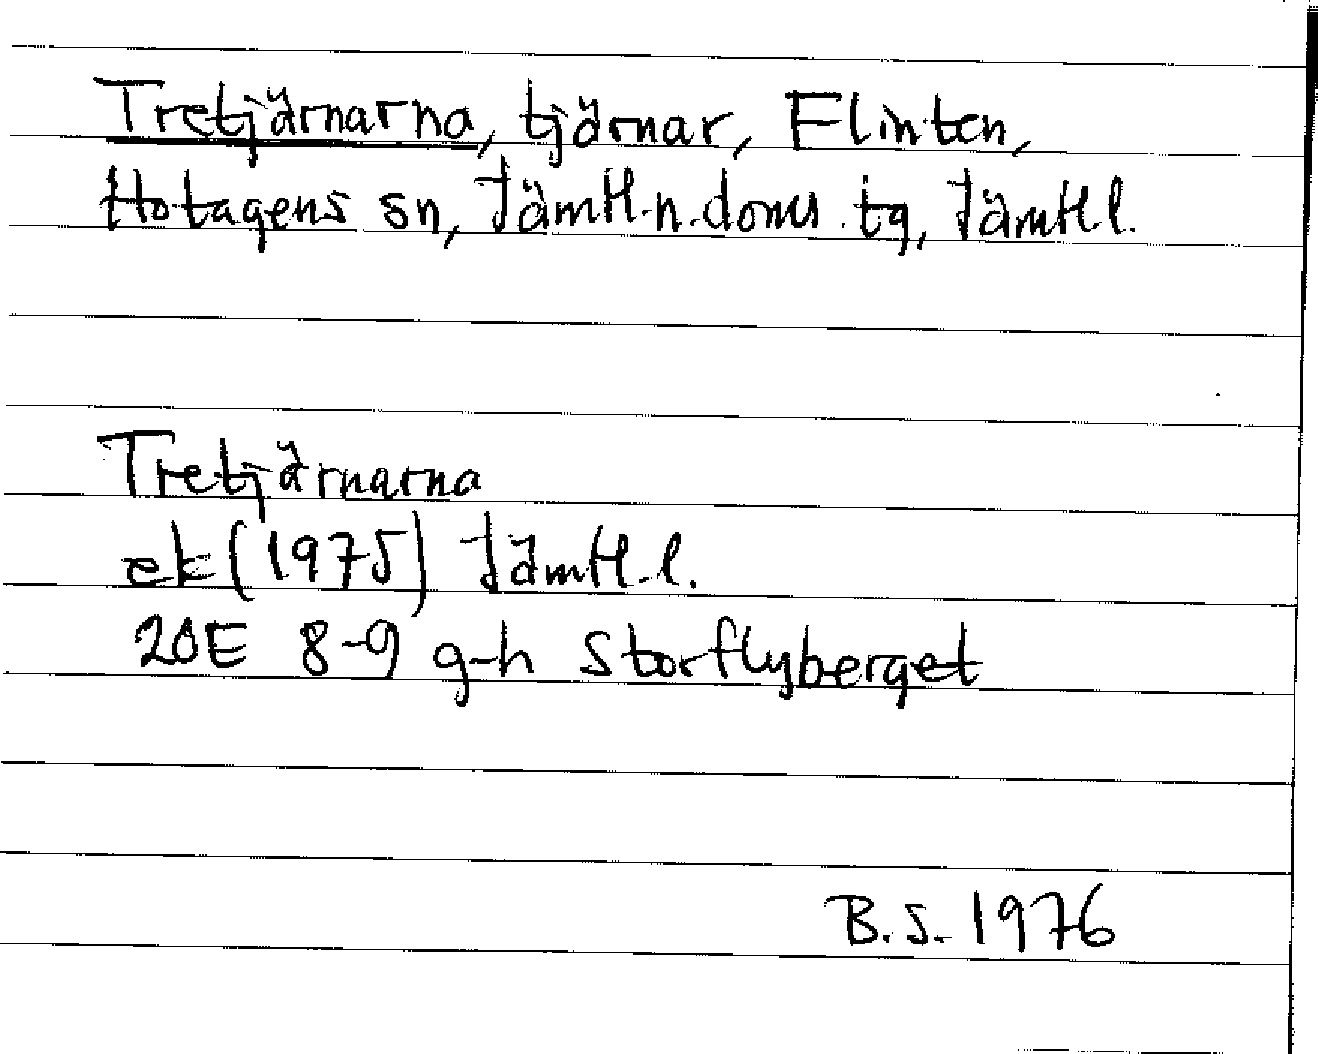 Tretjärnarna, tjärnar, Flinten,
Hotagens sn, Jämtl. n. doms. tg, Jämtl. l.
Tretjärnarna
ek (1975) Jämtl. l.
20E 8-9 g-h Storflyberget
B.S. 1976